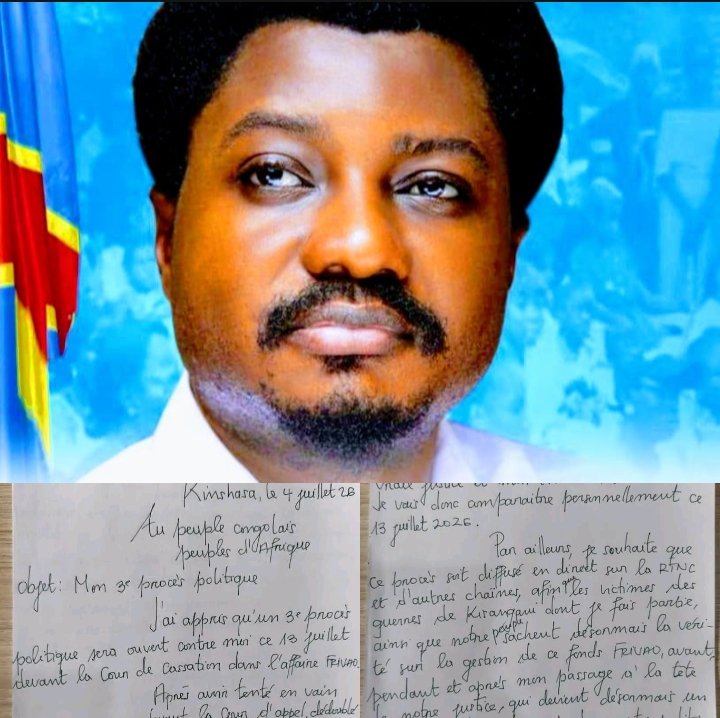 Kinshasa, le 4 juillet 26
Au peuple congolais
peuples d'Afrique
objet: Mon 3e procès politique
J'ai appris qu'un 3e procès
politique sera ouvert contre moi ce 13 juillet
devant la Cour de Cassation dans l'affaire FRIVAO.
Après avoir tenté en vain
la Cour d'appel,
vraie justice et mon
Je vais donc comparaitre personnellement ce
13 juillet 2026.
Par ailleurs, je souhaite que
ce procès soit diffusé en direct sur la RTNC
et d'autres chaînes, afin que les victimes des
guerres de Kisangani dont je fais partie,
ainsi que notre peuple sachent désormais la véri-
té sur la gestion de ce fonds FRIVAO, avant,
pendant et après mon passage à la tête
notre justice, qui devient désormais un